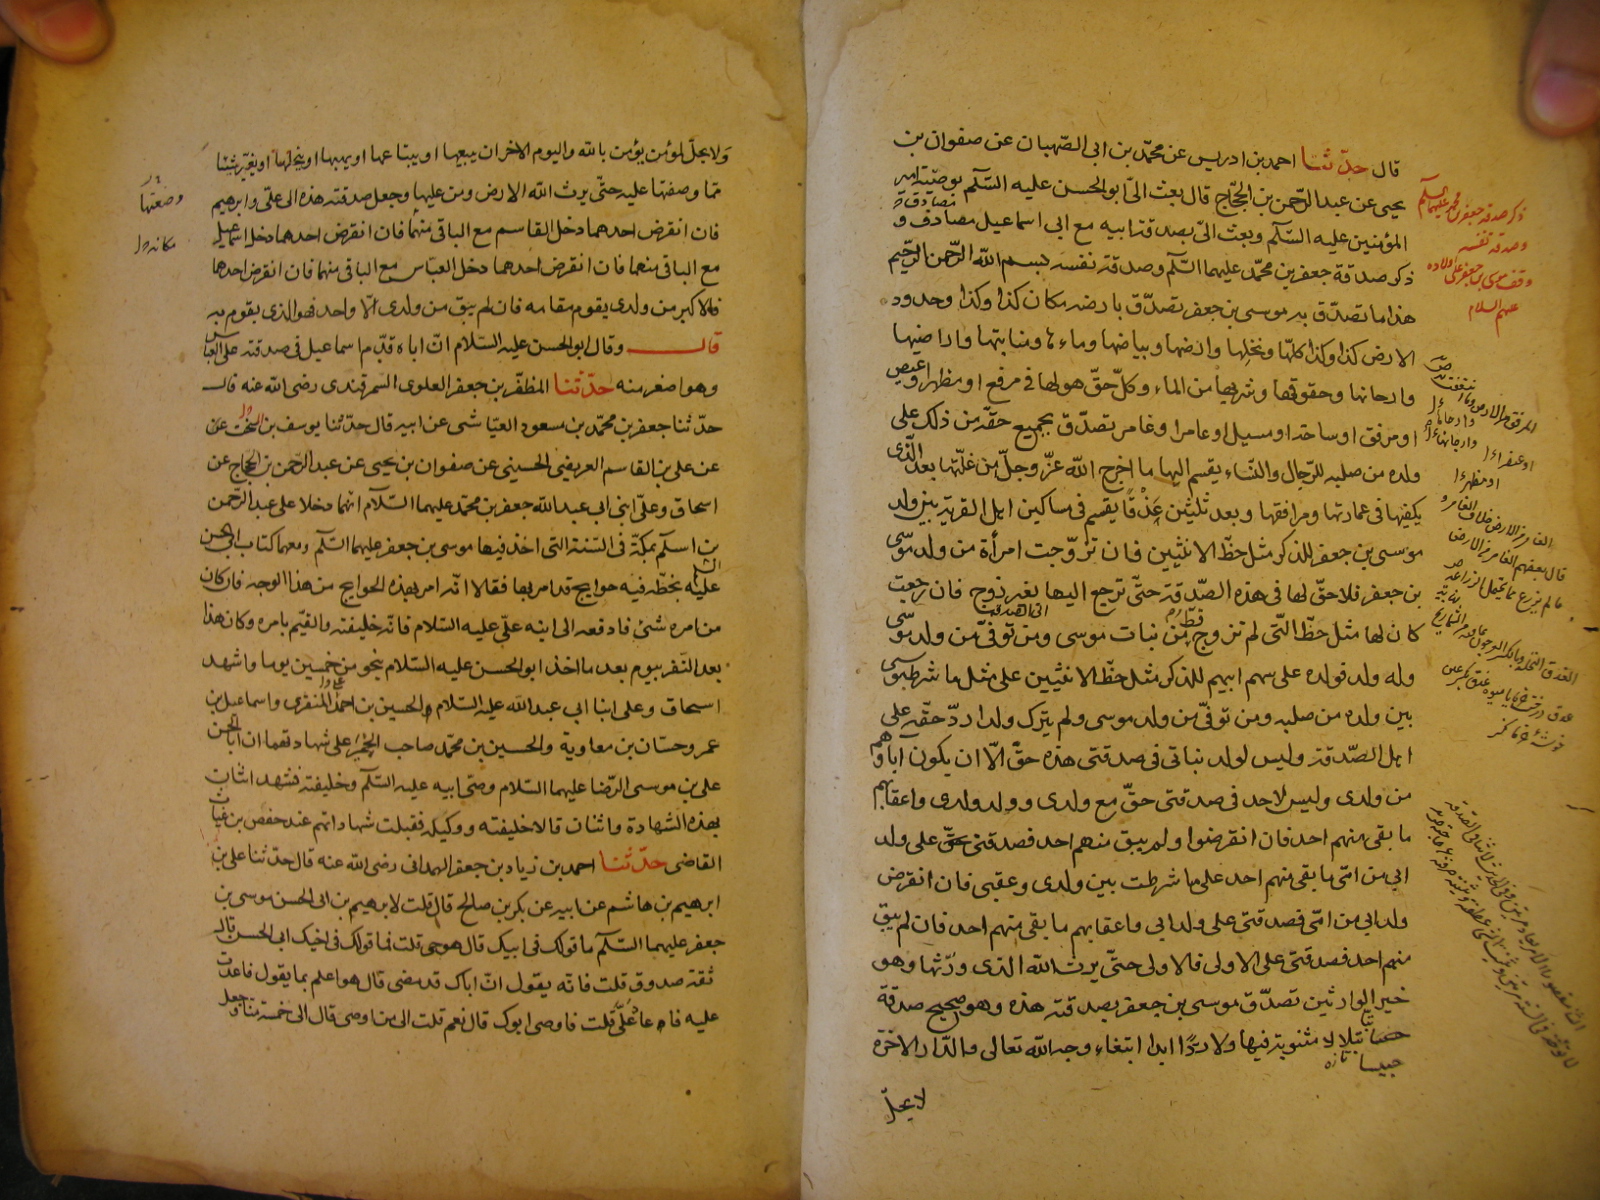 قال حدّثنا احمد بن ادريس عن محمّد بن ابى الصّهبان عن صفوان بن
يحيى عن عبد الرّحمن بن الحجّاج قال بعث الىّ ابو الحسن عليه السّلم بوصيّة امير
المؤمنين عليه السّلم وبعث الىّ بصدقة ابيه مع ابى اسماعيل مصادف و
ذكر صدقة جعفر بن محمّد عليهما السّلم وصدقة نفسه بسم الله الرّحمن الرّحيم
هذا ما تصدّق به موسى بن جعفر تصدّق بارضه مكان كذا وكذا وحدود
الارض كذا وكذا كلّها ونخلها وارضها وبياضها وماءها ومنابتها واراضيها
وارحائها وحقوقها وشربها من الماء وكلّ حقّ هو لها فى مرفع او مظهر او عيص
او مرفق او ساحة او مسيل او عامر او غامر تصدّق بجميع حقّه من ذلك على
ولده من صلبه للرّجال والنّساء يقسم اليها ما اخرج الله عزّ وجلّ من غلّتها بعد الّذى
يكفيها فى عمارتها ومرافقها وبعد ثلثين عذقًا يقسم فى مساكين اهل القرية بين ولد
موسى بن جعفر للذكر مثل حظّ الانثيين فان تزوّجت امرأة من ولد موسى
بن جعفر فلا حقّ لها فى هذه الصّدقة حتّى ترجع اليها بغير زوج فان رجعت
كان لها مثل حظّ الّتى لم تزوج قطّ من بنات موسى ومن توفّى من ولد موسى
وله ولد فولده على سهم ابيهم للذكر مثل حظّ الانثيين على مثل ما شرط موسى
بين ولده من صلبه ومن توفّى من ولد موسى ولم يترك ولدا ردّ حقّه على
اهل الصّدقة وليس لولد بناتى فى صدقتى هذه حقّ الّا ان يكون آباؤهم
من ولدى وليس لاحد فى صدقتى حقّ مع ولدى وولد ولدى واعقابهم
ما بقى منهم احد فان انقرضوا ولم يبق منهم احد فصدقتى على ولد
ابى من امّى ما بقى منهم احد على ما شرطت بين ولدى وعقبى فان انقرض
ولد ابى من امّى فصدقتى على ولد ابى واعقابهم ما بقى منهم احد فان لم يبق
منهم احد فصدقتى على الاولى فالاولى حتّى يرث الله الذى ورّثها وهو
خير الوارثين تصدّق موسى بن جعفر بصدقته هذه وهو صحيح صدقة
حبيسا بتلا لا مثنوية فيها ولا ردًّا ابدا ابتغاء وجه الله تعالى والدّار الاخرة
لا يحلّ
ذكر صدقة جعفر بن محمد عليهما السلم
وصدقة نفسه
وقف موسى بن جعفر على اولاده
عليهم السلام
ولا يحلّ لمؤمن يؤمن بالله واليوم الاخر ان يبيعها او يبتاعها او يهبها او ينحلها او يغيّر شيئا
ممّا وصفتها عليه حتّى يرث الله الارض ومن عليها وجعل صدقته هذه الى علىّ وابرهيم
فان انقرض احدهما دخل القاسم مع الباقى منهما فان انقرض احدهما دخل اسماعيل
مع الباقى منهما فان انقرض احدهما دخل العبّاس مع الباقى منهما فان انقرض احدهما
فالاكبر من ولدى يقوم مقامه فان لم يبق من ولدى الّا واحد فهو الذى يقوم به
قال وقال ابو الحسن عليه السّلام انّ اباه قدّم اسماعيل فى صدقته على العبّاس
وهو اصغر منه حدّثنا المظفّر بن جعفر العلوى السمرقندى رضى الله عنه قال
حدّثنا جعفر بن محمّد بن مسعود العيّاشى عن ابيه قال حدّثنا يوسف بن السخت عن
عن على بن القاسم العريضى الحسينى عن صفوان بن يحيى عن عبد الرّحمن بن الحجاج عن
اسحاق وعلىّ ابنى ابى عبد الله جعفر بن محمّد عليهما السّلام انّهما دخلا على عبد الرّحمن
بن اسلم بمكّة فى السّنة التى اخذ فيها موسى بن جعفر عليهما السّلم ومعهما كتاب ابى الحسن
عليه السلم بخطّه فيه حوايج قد امر بها فقالا انّه امر بهذه الحوايج من هذا الوجه فان كان
من امره شئ فادفعه الى ابنه علىّ عليه السّلام فانّه خليفته والقيّم بامره وكان هذا
بعد النّفر بيوم بعد ما اخذ ابو الحسن عليه السّلام بنحو من خمسين يوما واشهد
اسحاق وعلى ابنا ابى عبد الله عليه السّلام والحسين بن احمد المنقرى واسماعيل بن
عمر وحسّان بن معاوية والحسين بن محمّد صاحب الختم على شهادتهما ان ابا الحسن
على بن موسى الرّضا عليهما السّلام وصىّ ابيه عليه السّلم وخليفته فشهد اثنان
بهذه الشهادة واثنان قالا خليفته ووكيله فقبلت شهاداتهم عند حفص بن غياث
القاضى حدّثنا احمد بن زياد بن جعفر الهمدانى رضى الله عنه قال حدّثنا على بن
ابرهيم بن هاشم عن ابيه عن بكر بن صالح قال قلت لابرهيم بن ابى الحسن موسى بن
جعفر عليهما السّلم ما قولك فى ابيك قال هو حى قلت فما قولك فى اخيك ابى الحسن قال
ثقة صدوق قلت فانّه يقول انّ اباك قد مضى قال هو اعلم بما يقول فاعدت
عليه فاعاد علىّ قلت فاوصى ابوك قال نعم قلت الى من اوصى قال الى خمسة منّا وجعل
وضعتها
مكانه